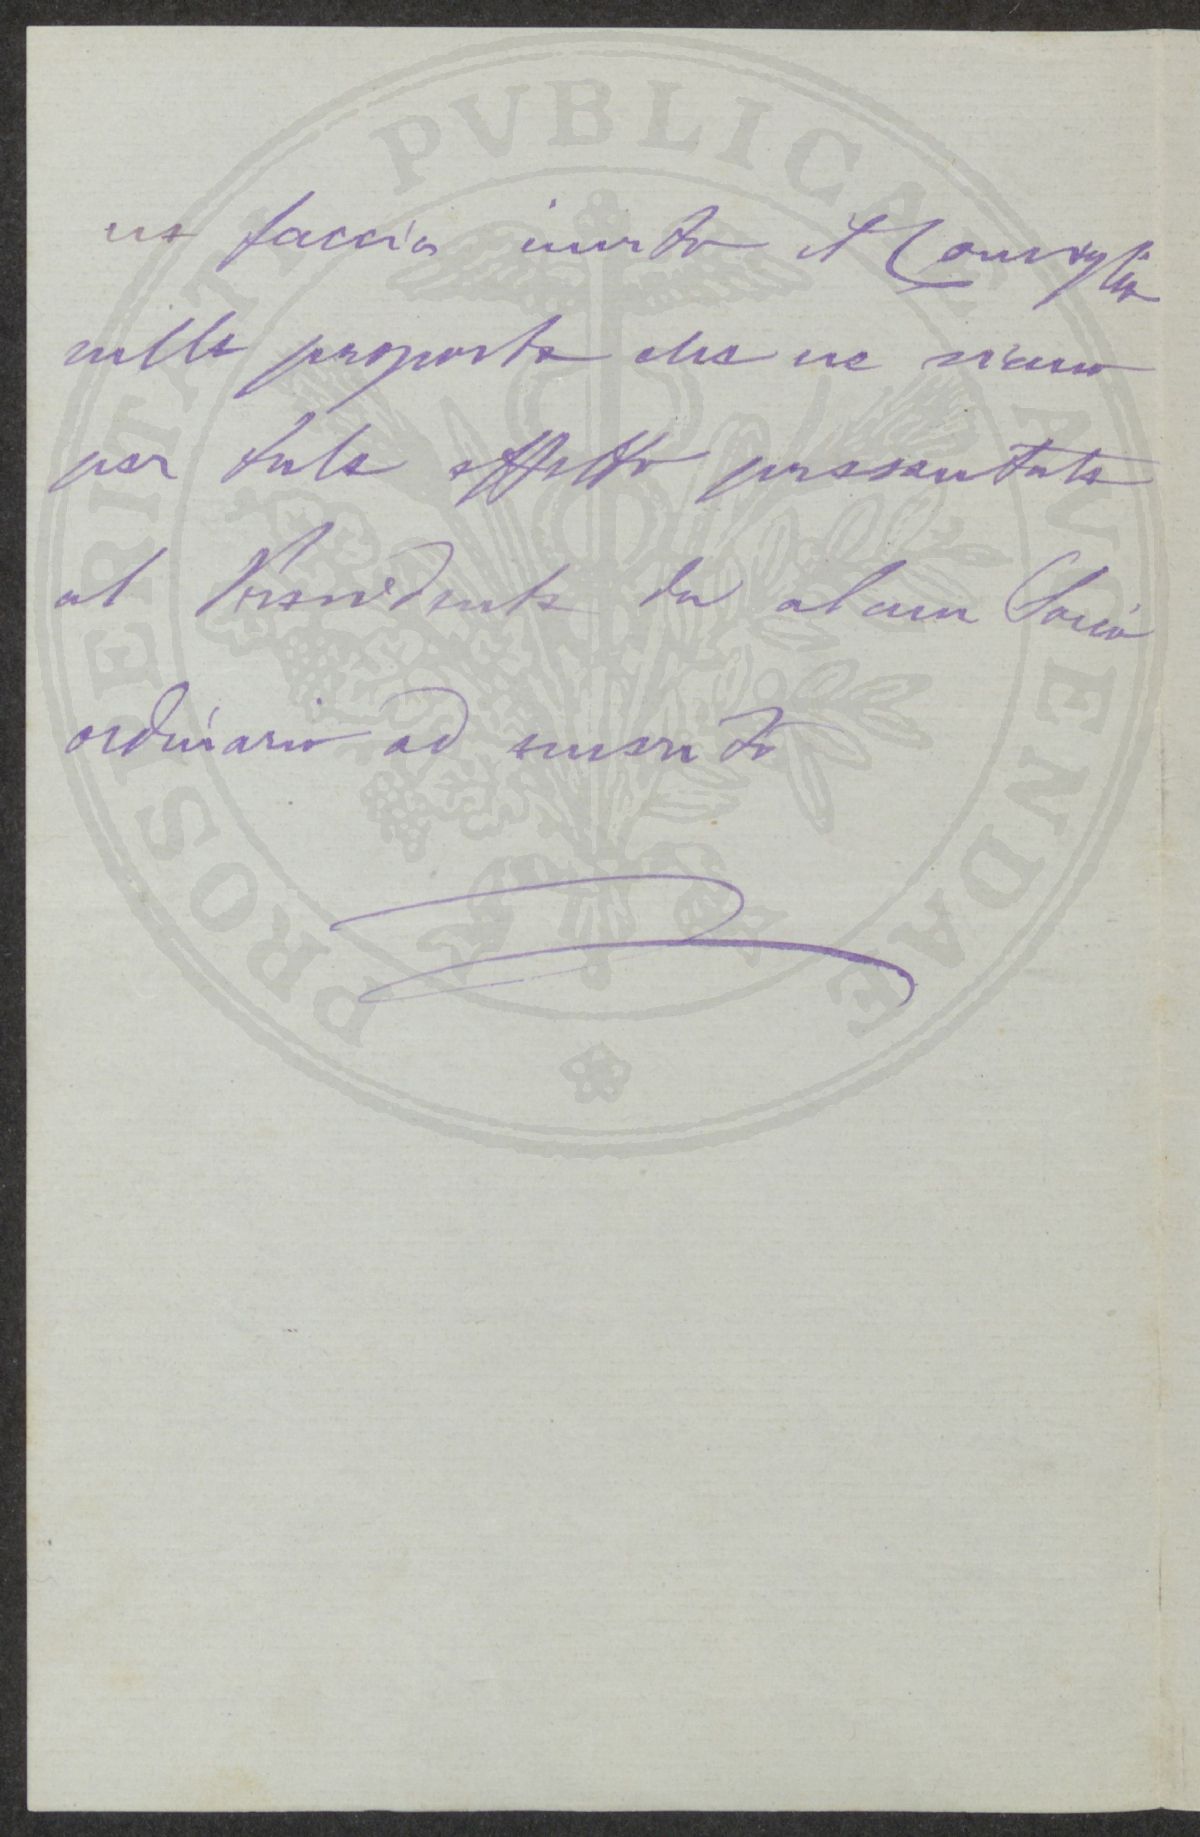 PROSPERITATI PVBLICAE AVGENDAE
ne faccia invito il Consiglio
sulle proposte che ne siano
per tale effetto presentate
al Presidente da alcun Socio
ordinario ed emerito